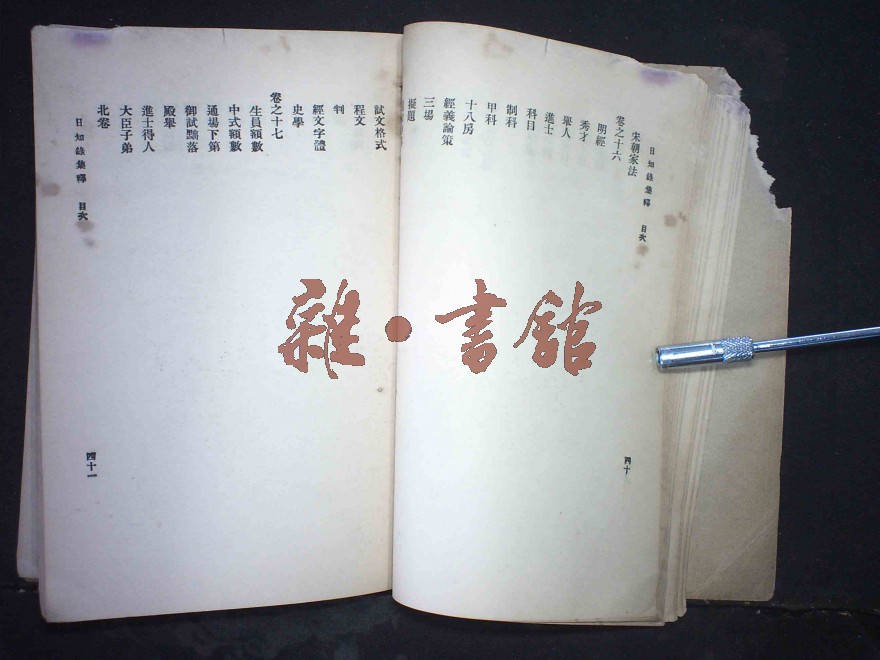 日知錄集釋 目次
宋朝家法
卷之十六
明經
秀才
舉人
進士
科目
制科
甲科
十八房
經義論策
三場
擬題
四十
試文格式
程文
判
經文字體
史學
卷之十七
生員額數
中式額數
通場下第
御試黜落
殿舉
進士得人
大臣子弟
北卷
日知錄集釋 目次
四十一
雜·書館